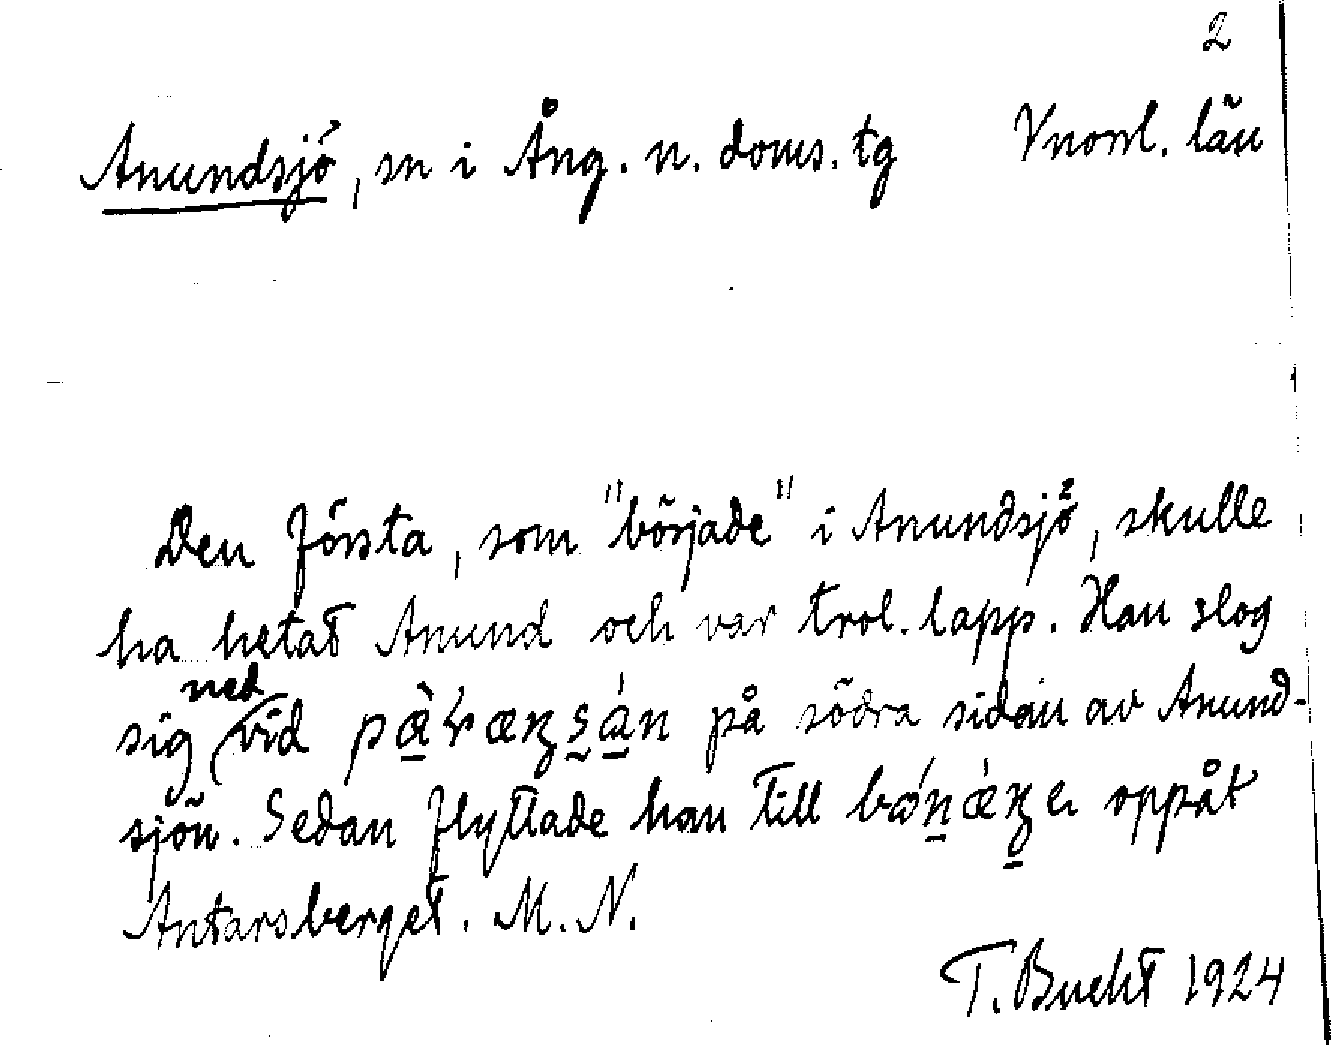 2
Anundsjö, sn i Ång. n. doms. tg Vnorrl. län
Den första, som "började" i Anundsjö, skulle
ha hetat Anund och var trol. lapp. Han slog
sig ned vid på södra sidan av Anund-
sjön. Sedan flyttade han till oppåt
Antarsberget. M. N.
T. Bucht 1924